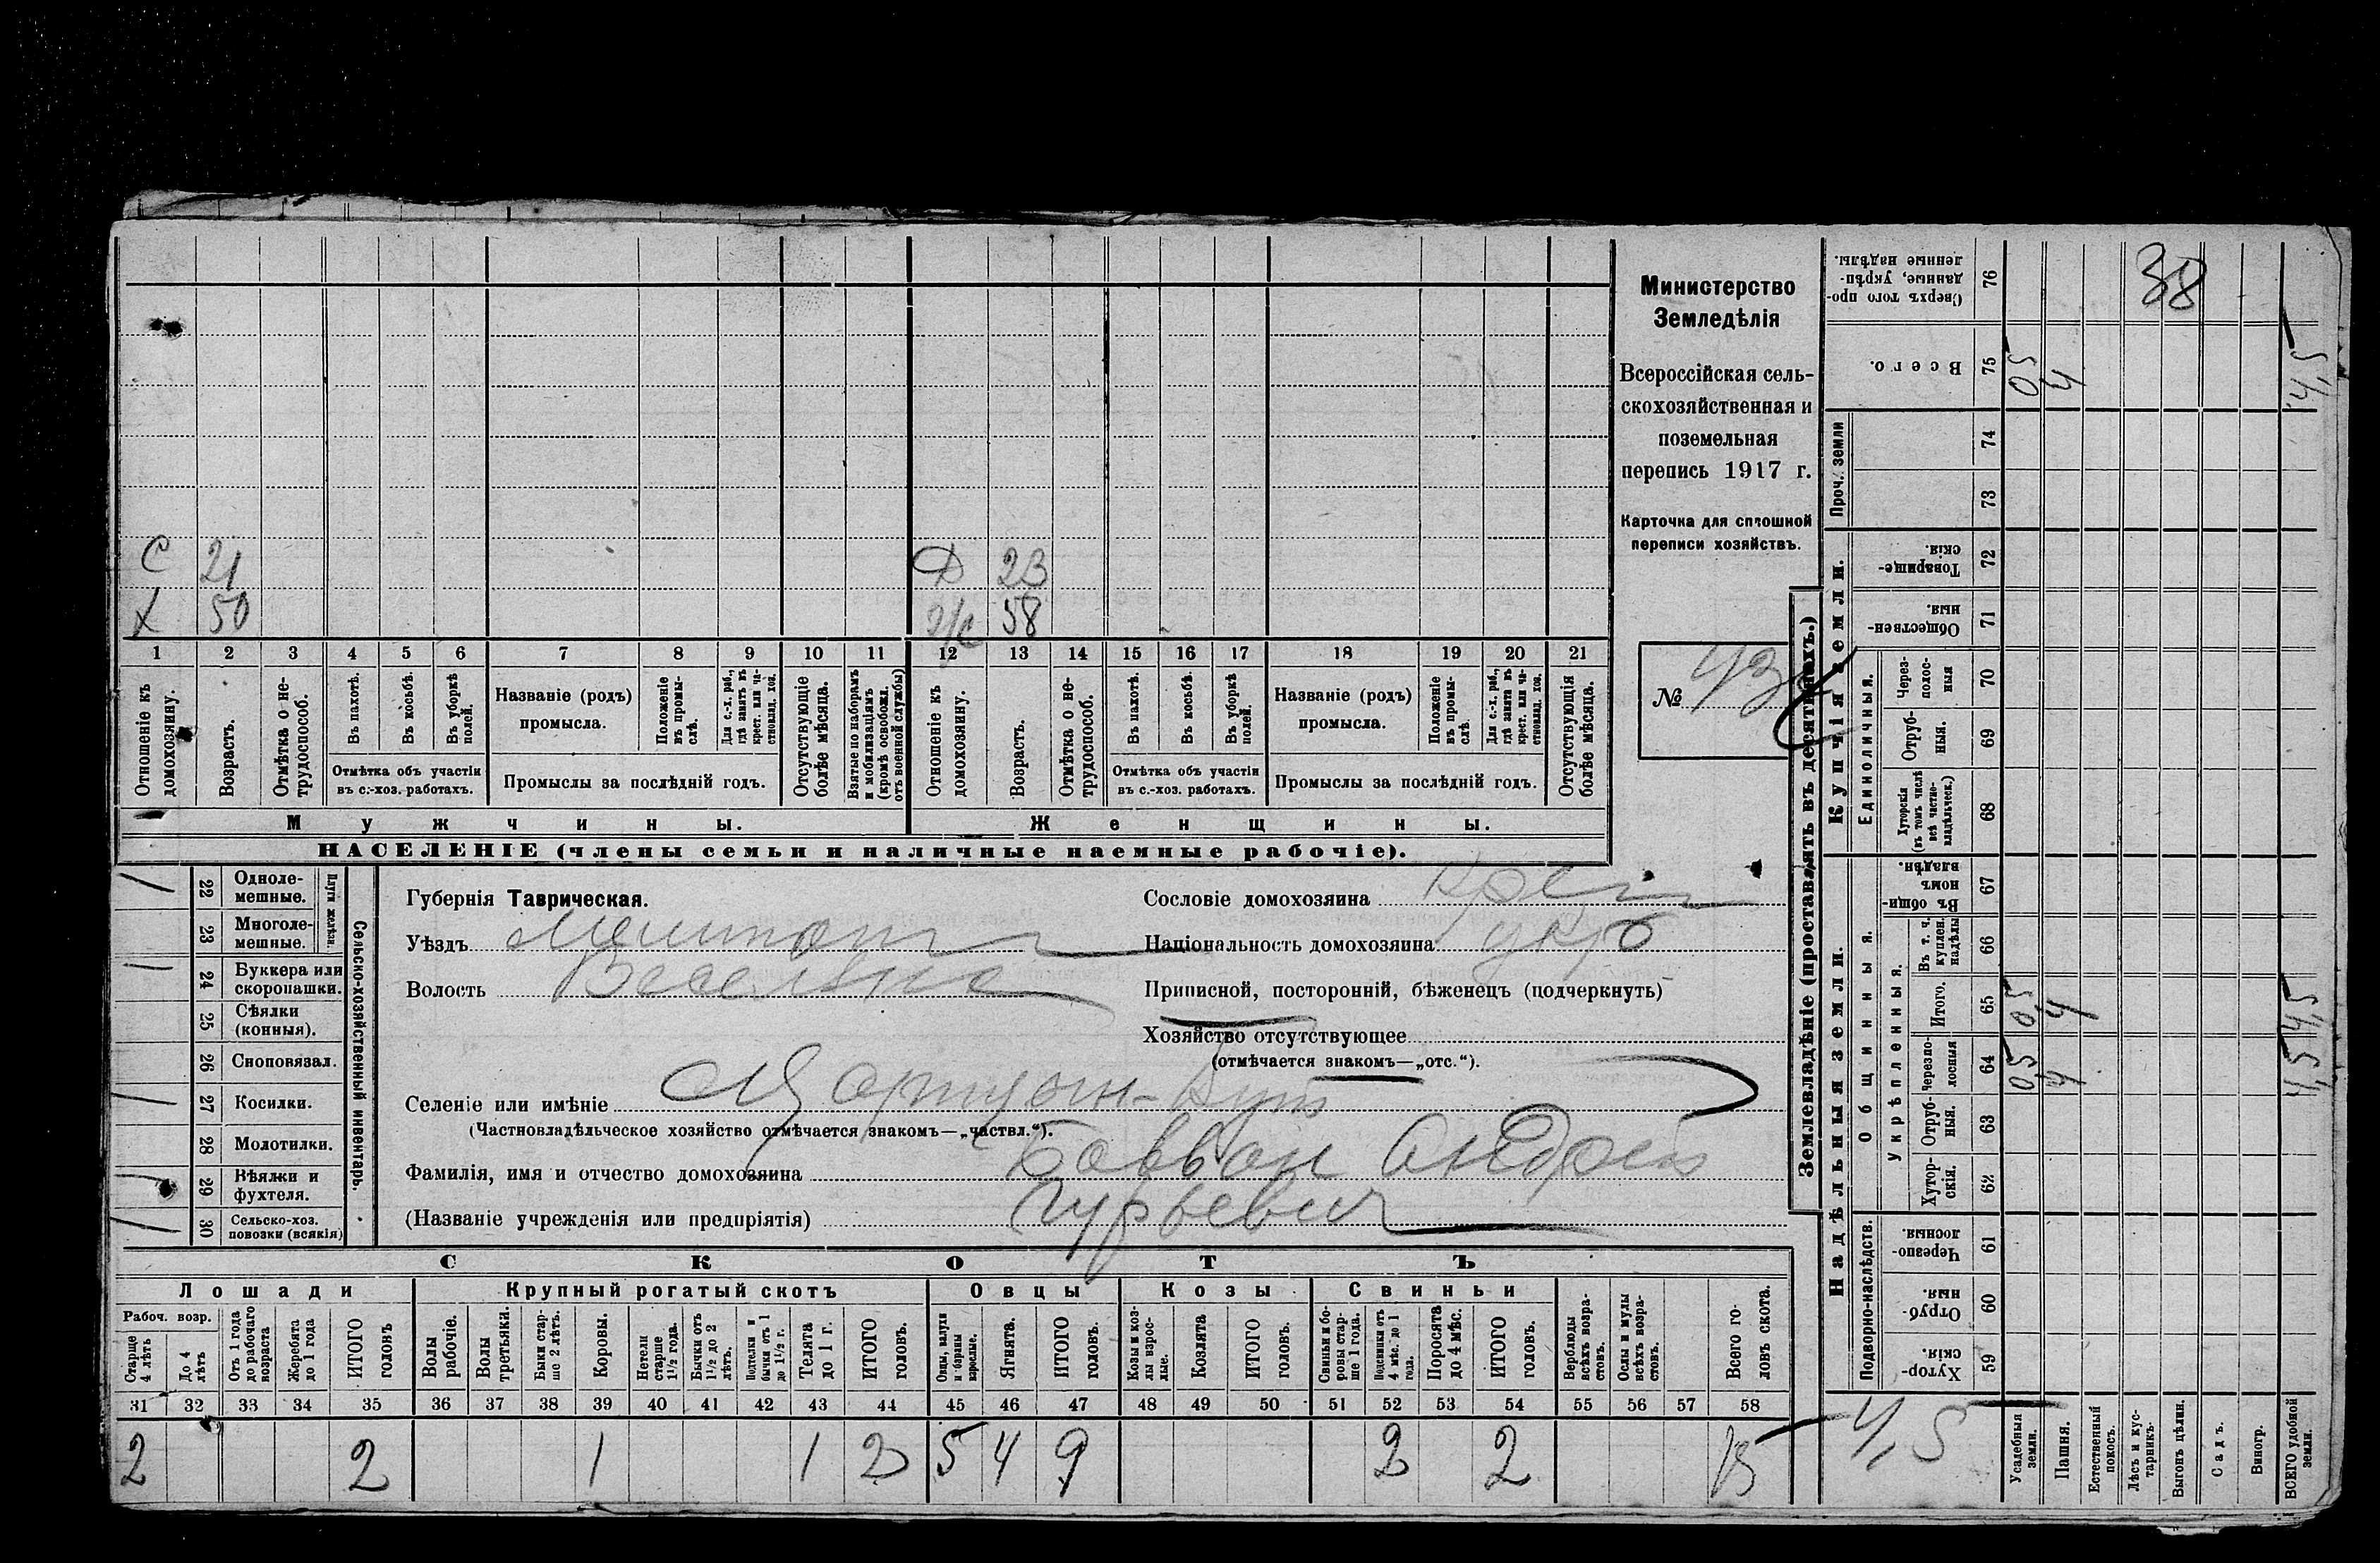 С 21 Д 23
Х 50 ж/с 58
1 2 3 4 5 6 7 8 9 10 11 12 13 14 15 16 17 18 19 20 21
Отношеніе къ домохозяину.
Возрастъ.
Отмѣтка о не-трудоспособ.
Въ пахотѣ.
Въ косьбѣ.
Въ уборкѣ полей.
Отмѣтка объ участіи въ с.-хоз. работахъ.
Названіе (родъ) промысла.
Положеніе въ промы-слѣ.
Для с.-х. раб., гдѣ занятъ въ крест. или ча-стновлад. хоз.
Промыслы за послѣдній годъ.
Отсутствующіе болѣе мѣсяца.
Взятые по наборамъ и мобилизаціямъ (кромѣ освобожд. отъ военной службы)
Отношеніе къ домохозяину.
Возрастъ.
Отмѣтка о не-трудоспособ.
Въ пахотѣ.
Въ косьбѣ.
Въ уборкѣ полей.
Отмѣтка объ участіи въ с.-хоз. работахъ.
Названіе (родъ) промысла.
Положеніе въ промы-слѣ.
Для с.-х. раб., гдѣ занятъ въ крест. или ча-стновлад. хоз.
Промыслы за послѣдній годъ.
Отсутствующія болѣе мѣсяца.
Мужчины. Женщины.
НАСЕЛЕНІЕ (члены семьи и наличные наемные рабочіе).
Министерство
Земледѣлія
Всероссійская сель-
скохозяйственная и
поземельная
перепись 1917 г.
Карточка для сплошной
переписи хозяйствъ.
№ 43
Сельско-хозяйственный инвентарь.
Плуги желѣзн.
22 Одноле-мешные.
23 Многоле-мешные.
24 Буккера или скоропашки.
25 Сѣялки (конныя).
26 Сноповязал.
27 Косилки.
28 Молотилки.
29 Вѣялки и фухтеля.
30 Сельско-хоз. повозки (всякія)
Губернія Таврическая.
Уѣздъ Мелитоп
Волость Веселовск
Сословіе домохозяина крест
Національность домохозяина укр
Приписной, посторонній, бѣженецъ (подчеркнуть)
Хозяйство отсутствующее
(отмѣчается знакомъ—„отс.“).
Селеніе или имѣніе
(Частновладѣльческое хозяйство отмѣчается знакомъ—„частвл.“).
Фамилія, имя и отчество домохозяина Андрей
(Названіе учрежденія или предпріятія) Гурьевич
СКОТЪ
Лошади Крупный рогатый скотъ Овцы Козы Свиньи
Рабоч. возр.
Старше 4 лѣтъ
До 4 лѣтъ
Отъ 1 года до рабочаго возраста
Жеребята до 1 года
ИТОГО головъ
Волы рабочіе.
Волы третьяки.
Быки стар-ше 2 лѣтъ.
Коровы.
Нетели старше 1½ года.
Бычки отъ 1½ до 2 лѣтъ.
Подтелки и бычки отъ 1 до 1½ г.
Телята до 1 г.
ИТОГО головъ.
Овцы, валухи и бараны взрослые.
Ягнята.
ИТОГО головъ.
Козы и коз-лы взрос-лые.
Козлята
ИТОГО головъ.
Свиньи и бо-ровы стар-ше 1 года.
Подсвинки отъ 4 мѣс. до 1 года.
Поросята до 4 мѣс.
ИТОГО головъ.
Верблюды всѣхъ возра-стовъ.
Ослы и мулы всѣхъ возра-стовъ.
Всего го-ловъ скота.
31 32 33 34 35 36 37 38 39 40 41 42 43 44 45 46 47 48 49 50 51 52 53 54 55 56 57 58
2 2 1 1 2 5 4 9 2 2 15
Землевладѣніе (проставлять въ десятинахъ.)
Купчія земли.
Надѣльныя земли.
Проч. земли
Единоличныя.
Общинныя.
Укрѣпленныя.
Подворно-наслѣдств.
Сверхъ того про-данные, укрѣп-ленные надѣлы. 76 38
Всего. 75 05 4 4,5
74
73
Товарище-скія. 72
Обществен-ныя. 71
Через-полос-ныя 70
Отруб-ныя. 69
Хуторскія (въ томъ числѣ всѣ частно-владѣльческ.) 68
Въ общи-номъ владѣн. 67
Въ т. ч. куплен. надѣлы 66
Итого. 65 05 4 4,5
Черезпо-лосныя 64 05 4 4,5
Отруб-ныя. 63
Хутор-скія. 62
Черезпо-лосныя. 61
Отруб-ныя. 60
Хутор-скія. 59
4,5
Усадебныя земли.
Пашня.
Естественный покосъ.
Лѣсъ и кус-тарникъ.
Выгонъ цѣлин.
Садъ.
Виногр.
ВСЕГО удобной земли.